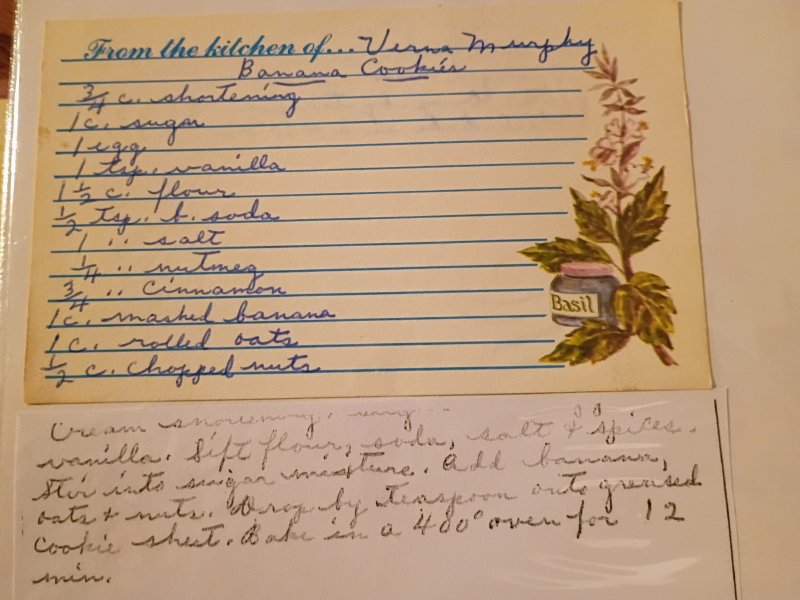 From the kitchen of... Verna Murphy
Banana Cookies
3/4 c. shortening
1 c. sugar
1 egg
1 tsp. vanilla
1 1/2 c. flour
1/2 tsp. b. soda
1 " salt
1/4 " nutmeg
3/4 " cinnamon
1 c. mashed banana
1 c. rolled oats
1/2 c. chopped nuts
Basil
Cream shortening,
vanilla. Sift flour, soda, salt & spices.
Stir into sugar mixture. Add banana,
oats & nuts. Drop by teaspoon onto greased
cookie sheet. Bake in a 400° oven for 12
min.